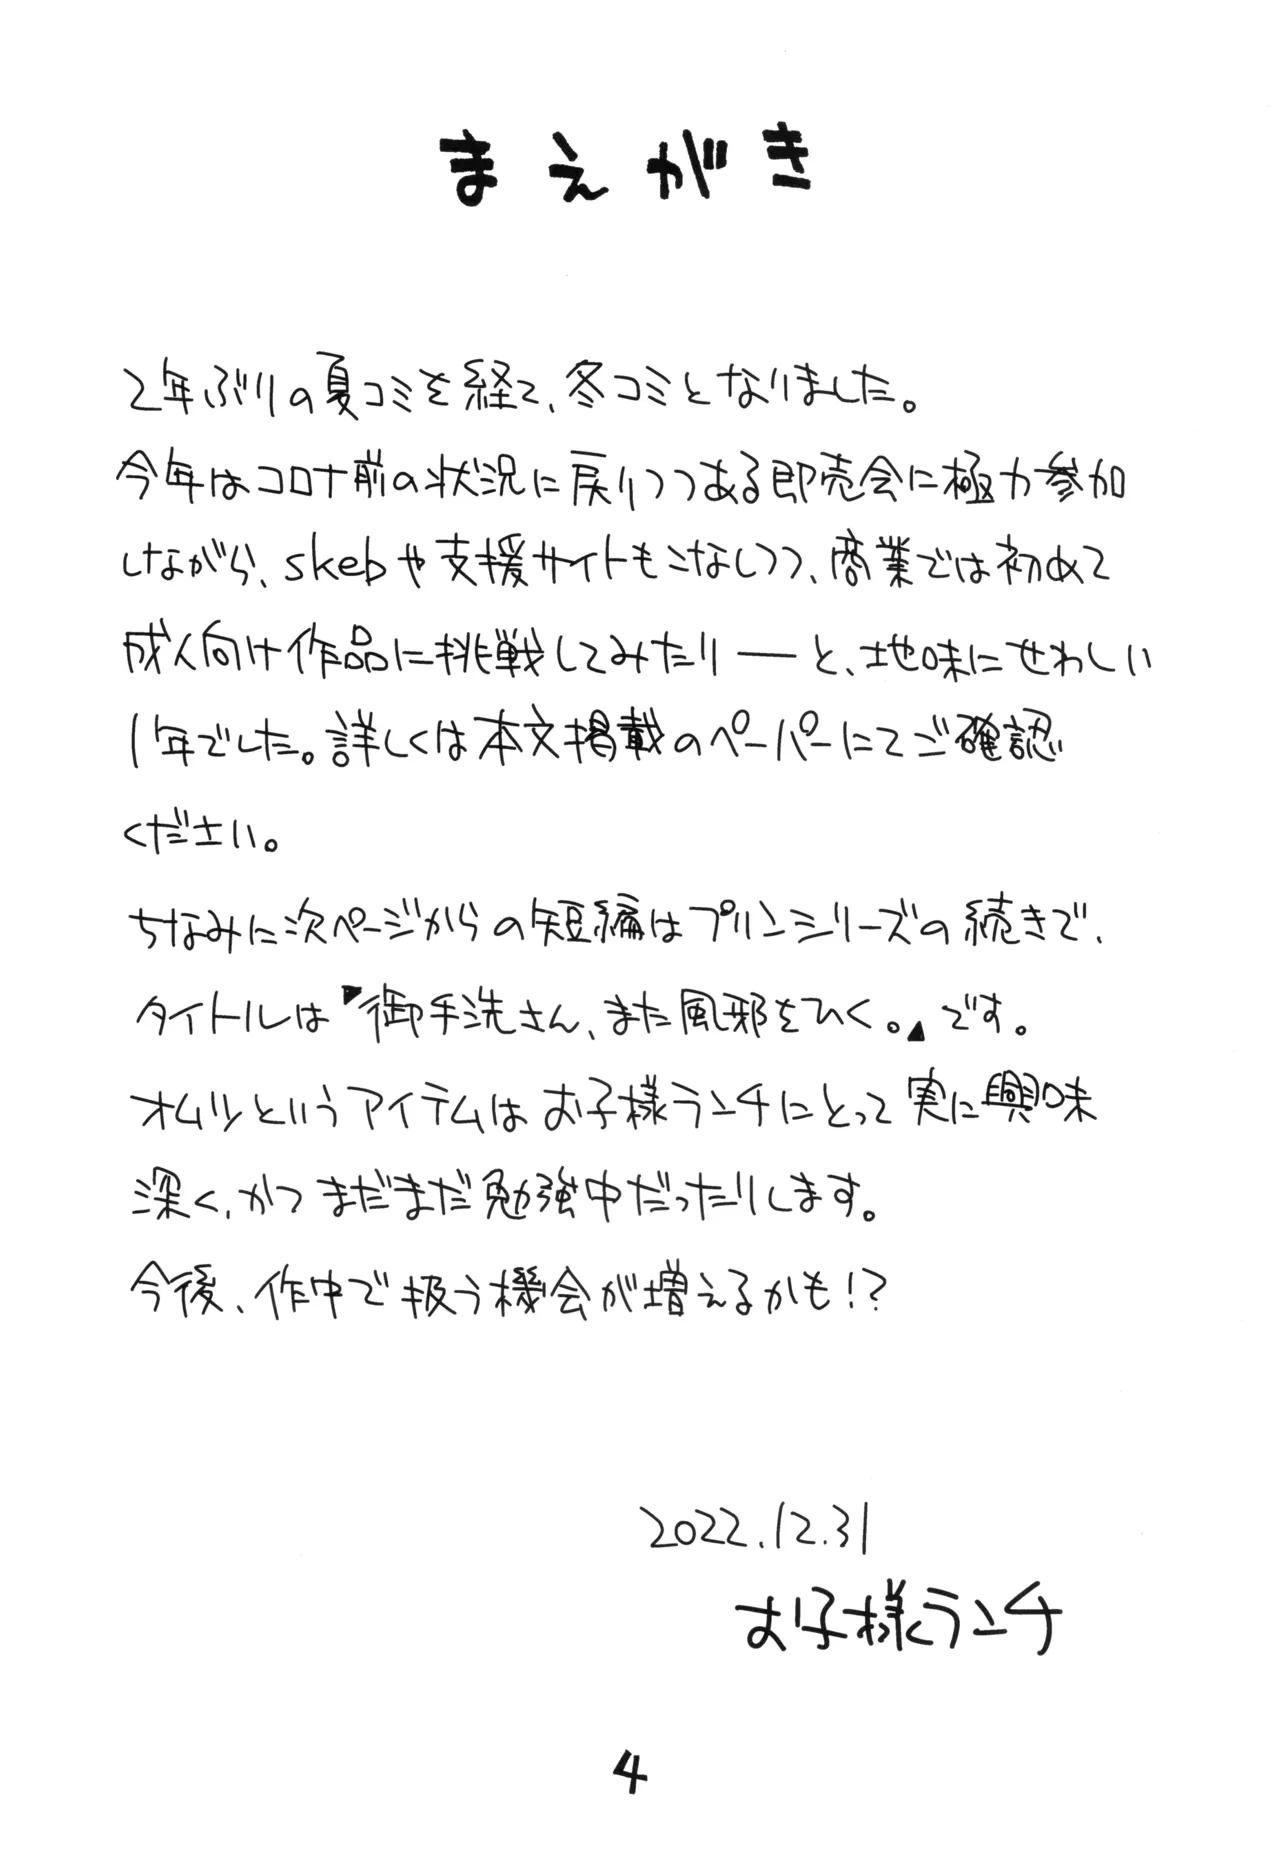 まえがき
2年ぶりの夏コミを経て、冬コミとなりました。
今年はコロナ前の状況に戻りつつある即売会に極力参加
しながら、skebや支援サイトもこなしつつ、商業では初めて
成人向け作品に挑戦してみたり──と、地味にせわしい
1年でした。詳しくは本文掲載のペーパーにてご確認
ください。
ちなみに次ページからの短編はプリンシリーズの続きで、
タイトルは『御手洗さん、また風邪をひく。』です。
オムツというアイテムはお子様ランチにとって実に興味
深く、かつまだまだ勉強中だったりします。
今後、作中で扱う機会が増えるかも!?
2022.12.31
お子様ランチ
4